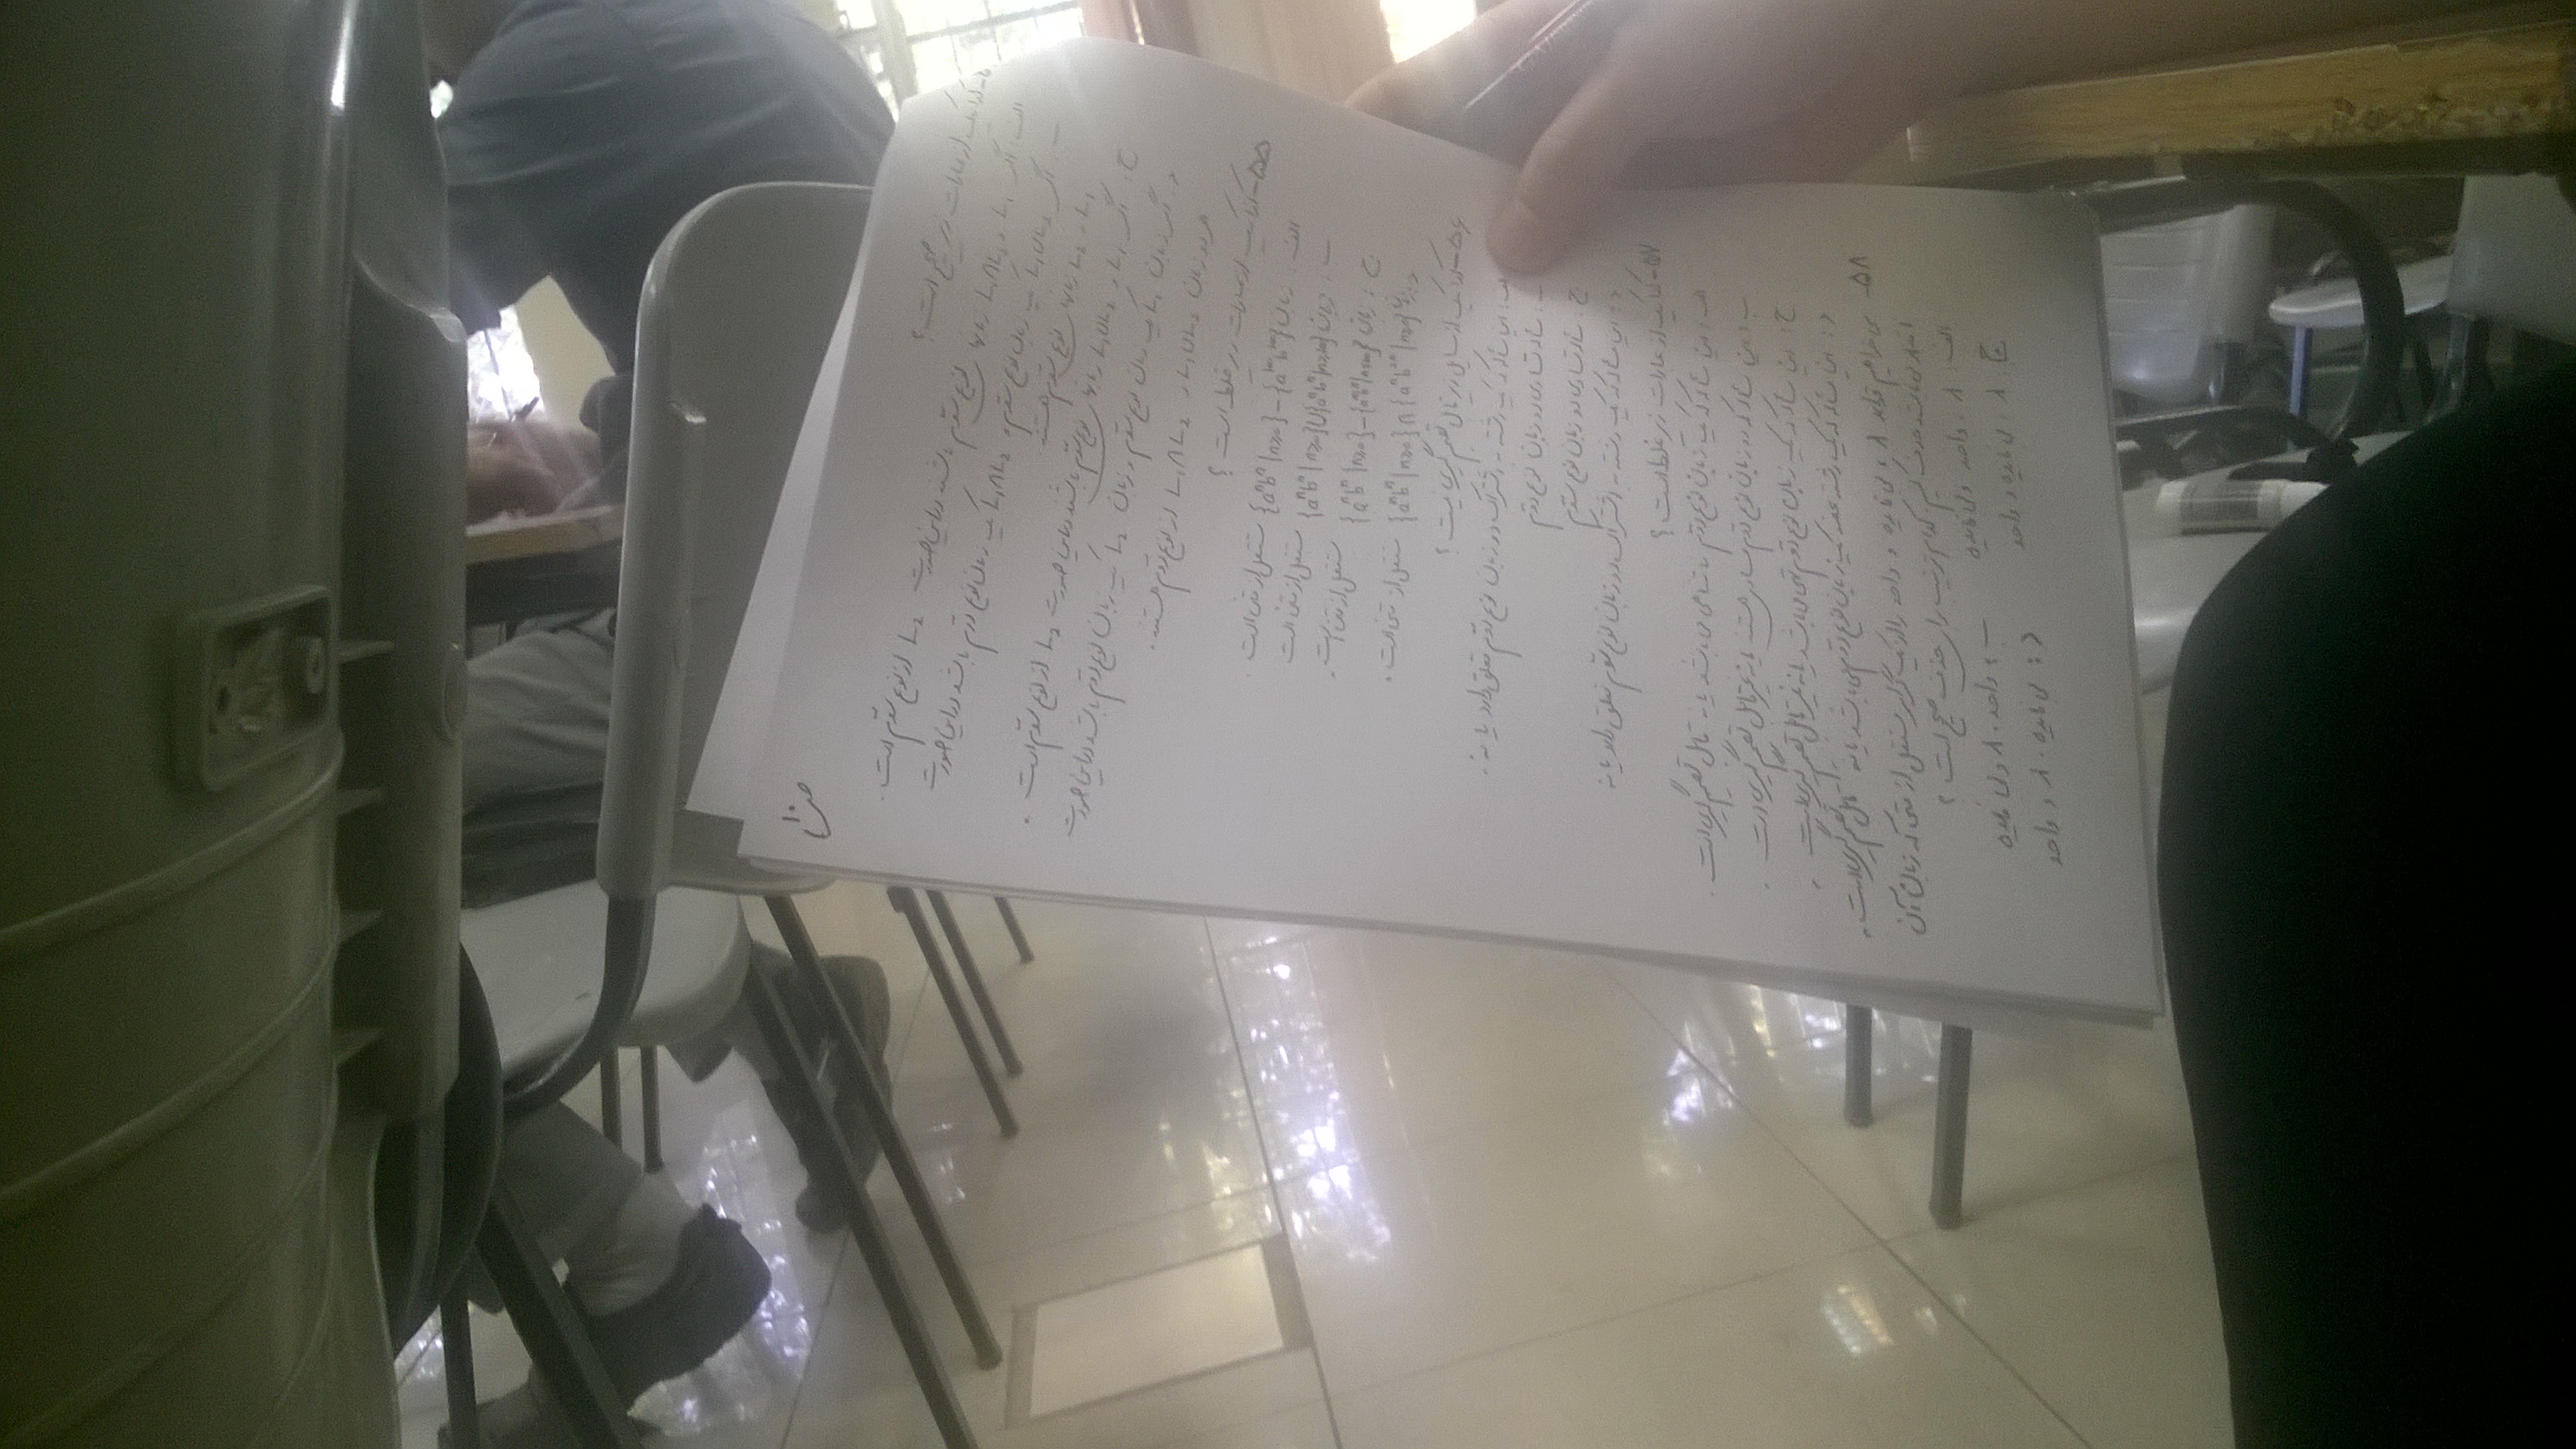 ص ۱۰
کدامیک از عبارات زیر صحیح است ؟
الف : اگر L₁ و L₁∩L₂ زبانهای نوع سوم باشند در این صورت L₂ از نوع سوم است .
ب : اگر L₁∪L₂ یک زبان نوع سوم و L₁∩L₂ یک زبان نوع دوم باشد در این صورت
L₁ و L₂ زبانهای نوع سوم هستند
ج : اگر L₁ و L₁∪L₂ زبانهای نوع سوم باشند در این صورت L₂ از نوع سوم است .
د : اگر زبان L₁ یک زبان نوع سوم و زبان L₂ یک زبان نوع دوم باشد در این صورت
هر دو زبان L₁∪L₂ و L₁∩L₂ از نوع دوم هستند .
۵۵- کدامیک از عبارات زیر غلط است ؟
الف : زبان {aⁿbⁿ|n≥0}-{ } مستقل از متن است .
ب : زبان {aⁿbⁿ|n≥0}∪{ } مستقل از متن است
ج : زبان {aⁿbⁿ|n≥0}-{ } مستقل از متن است .
د : زبان {aⁿbⁿ|n≥0}∩{aⁿb²ⁿ|n≥0} مستقل از متن است .
۵۶- کدامیک از مسایل زیر قابل تصمیم گیری نیست ؟
الف : این مسأله که یک رشته به اشتراک دو زبان نوع دوم تعلق دارد یا نه .
ب : مسأله تساوی دو زبان نوع دوم
ج : مسأله تساوی دو زبان نوع سوم
د : این مسأله که یک رشته به اشتراک دو زبان نوع سوم تعلق دارد یا نه
۵۷- کدامیک از عبارات زیر غلط است ؟
الف : این مسأله که یک زبان نوع دوم نامتناهی می باشد یا نه قابل تصمیم گیری است .
ب : این مسأله که دو زبان نوع دوم مساوی هستند یا نه غیر قابل تصمیم گیری است .
ج : این مسأله که یک زبان نوع دوم تهی می باشد یا نه غیر قابل تصمیم گیری است .
د : این مسأله که یک رشته عضو یک زبان نوع دوم می باشد یا نه قابل تصمیم گیری است .
۵۸- می خواهیم قواعد λ ، بی فایده و واحد را از یک گرامر مستقل از متن که زبان آن
فاقد λ می باشد حذف کنیم کدام ترتیب برای حذف صحیح است ؟
الف : λ ، واحد و بی فایده ب : واحد ، λ و بی فایده
ج : λ ، بی فایده و واحد د : بی فایده ، λ و واحد